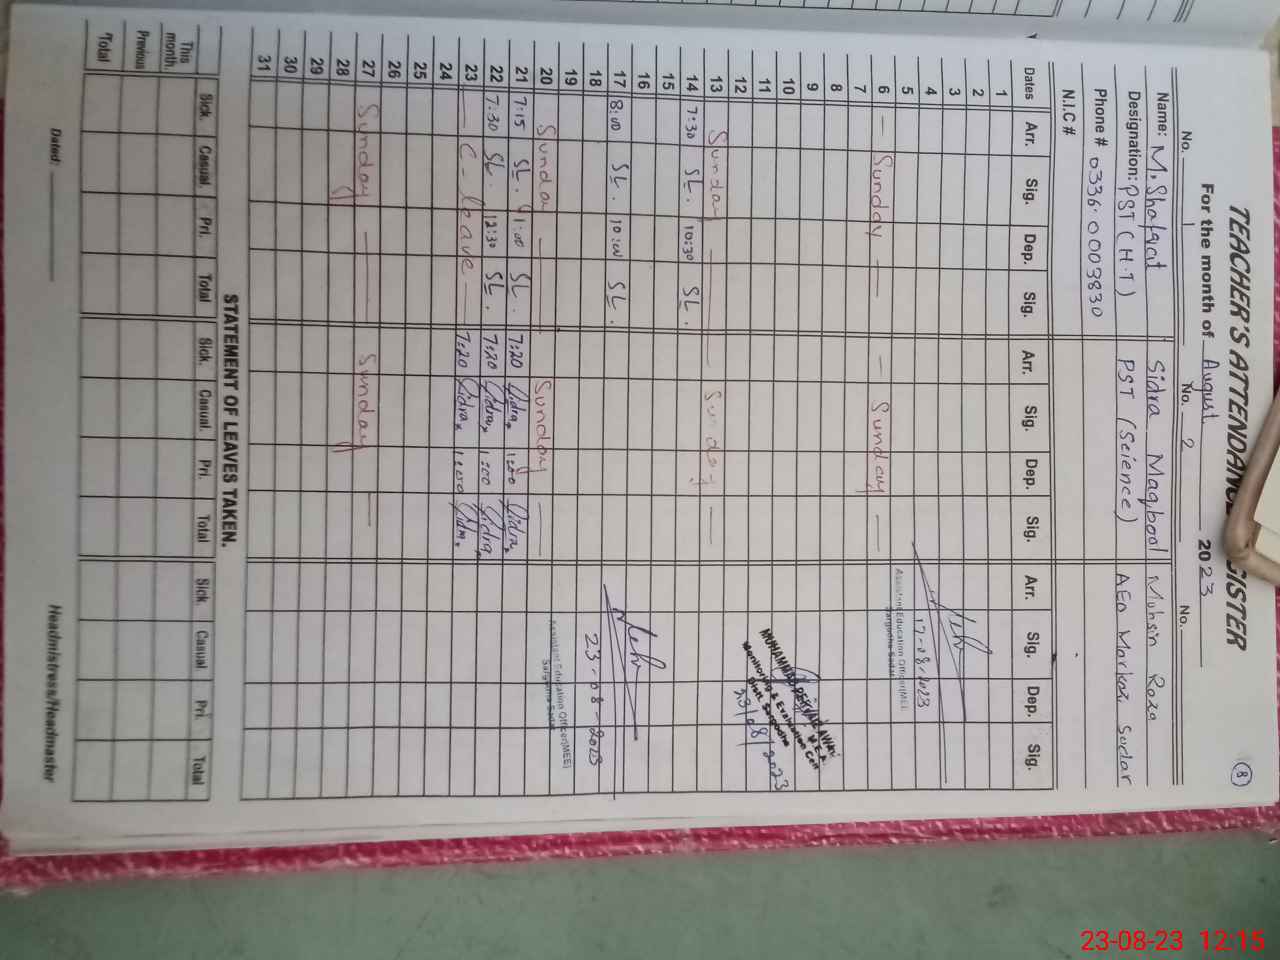 8
TEACHER'S ATTENDANCE REGISTER
For the month of August 2023
No. 1 No. 2 No.
Name: M. Shafqat Sidra Maqbool Mohsin Raza
Designation: PST (H.T) PST (Science) AEO Markaz Sadar
Phone # 0336.0003830
N.I.C #
Dates Arr. Sig. Dep. Sig. Arr. Sig. Dep. Sig. Arr. Sig. Dep. Sig.
1
2
3
4 17-08-2023
5 Assistant Education Officer(MEE)
Sargodha Sadar
6 — Sunday — — Sunday —
7
8
9
10 MUHAMMAD PERVAIZ AWAN
M.E.A
11 Monitoring & Evaluation Cell
Distt. Sargodha
12 23/08/2023
13 Sunday — Sunday —
14 7:30 SL. 10:30 SL.
15
16
17 8:00 SL. 10:00 SL.
18 23-08-2023
19 Assistant Education Officer(MEE)
Sargodha Sadar
20 Sunday — Sunday —
21 7:15 SL. 1:00 SL. 7:20 Sidra 1:00 Sidra
22 7:30 SL. 12:30 SL. 7:20 Sidra 1:00 Sidra
23 — C-leave — 7:20 Sidra 1:00 Sidra
24
25
26
27 Sunday — Sunday —
28
29
30
31
STATEMENT OF LEAVES TAKEN.
Sick. Casual. Pri. Total Sick. Casual. Pri. Total Sick. Casual Pri. Total
This month.
Previous
Total
Dated: Headmistress/Headmaster
23-08-23 12:15